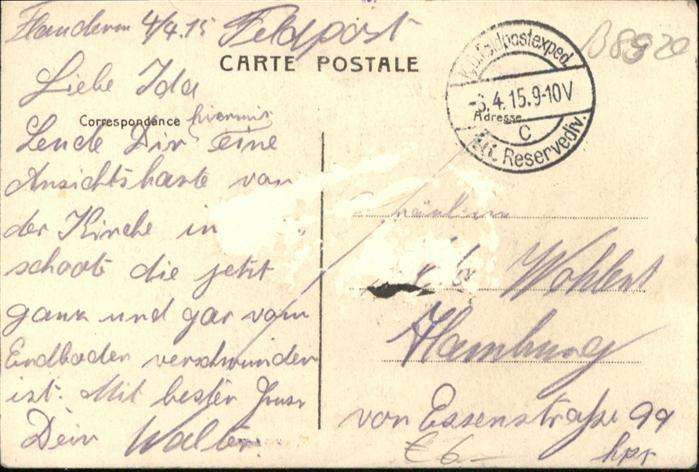 Flandern 4/4.15 Feldpost
B8920
CARTE POSTALE
Correspondance
Adresse
K.D. Feldpostexped.
-6.4.15.9-10V
c
Reservediv.
Liebe Ida
hiermit
Sende Dir eine
Ansichtskarte von
der Kirche in
schoote die jetzt
ganz und gar vom
Erdboden verschwunden
ist. Mit besten Gruss
Dein Walter.
Fräulein
Wohlert
Hamburg
von Essenstraße 99
hpr
€ 6-